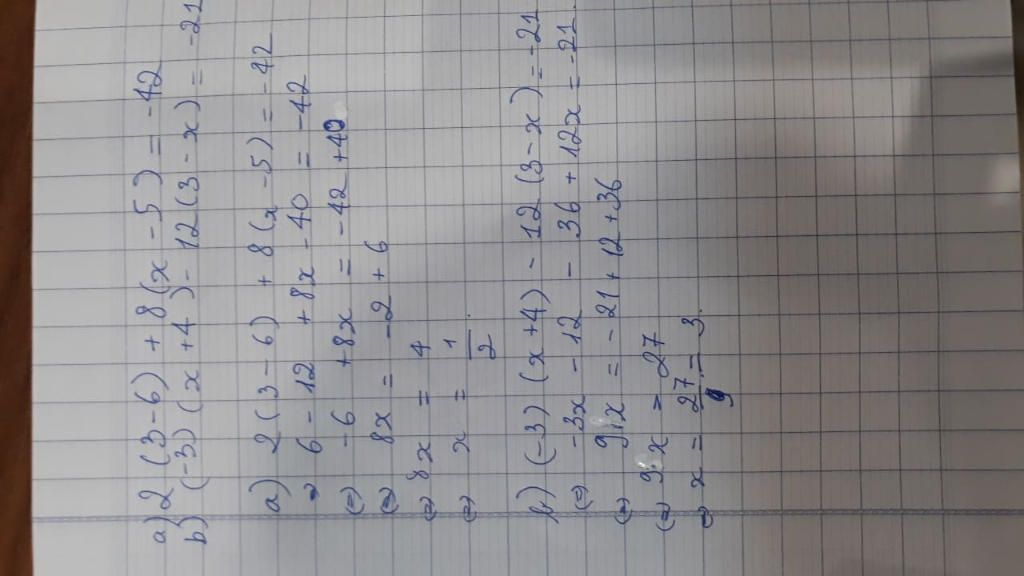 a) 2 (3-6) + 8 (x - 5) = -42
b) (-3) (x + 4) - 12 (3 - x) = -21
a) 2 (3 - 6) + 8 (x - 5) = -42
⇔ 6 - 12 + 8x - 40 = -42
⇔ -6 + 8x = -42 + 40
⇔ 8x = -2 + 6
⇔ 8x = 4
⇔ x = 1/2
b) (-3) (x + 4) - 12 (3 - x) = -21
⇔ -3x - 12 - 36 + 12x = -21
⇔ 9x = -21 + 12 + 36
⇔ 9x = 27
⇔ x = 27/9 = 3.